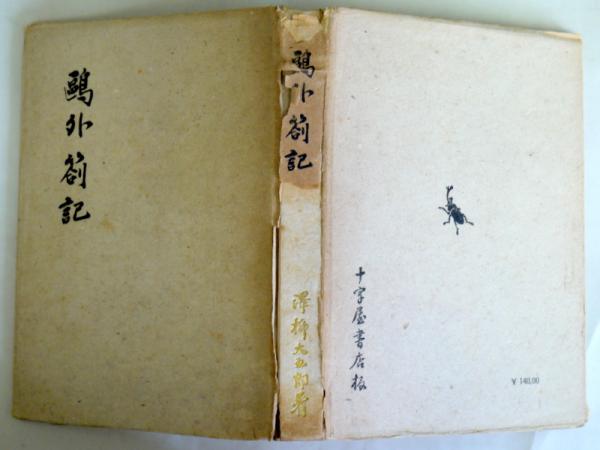 鷗外劄記
鷗外劄記
澤柳大五郎著
十字屋書店板
￥140.00